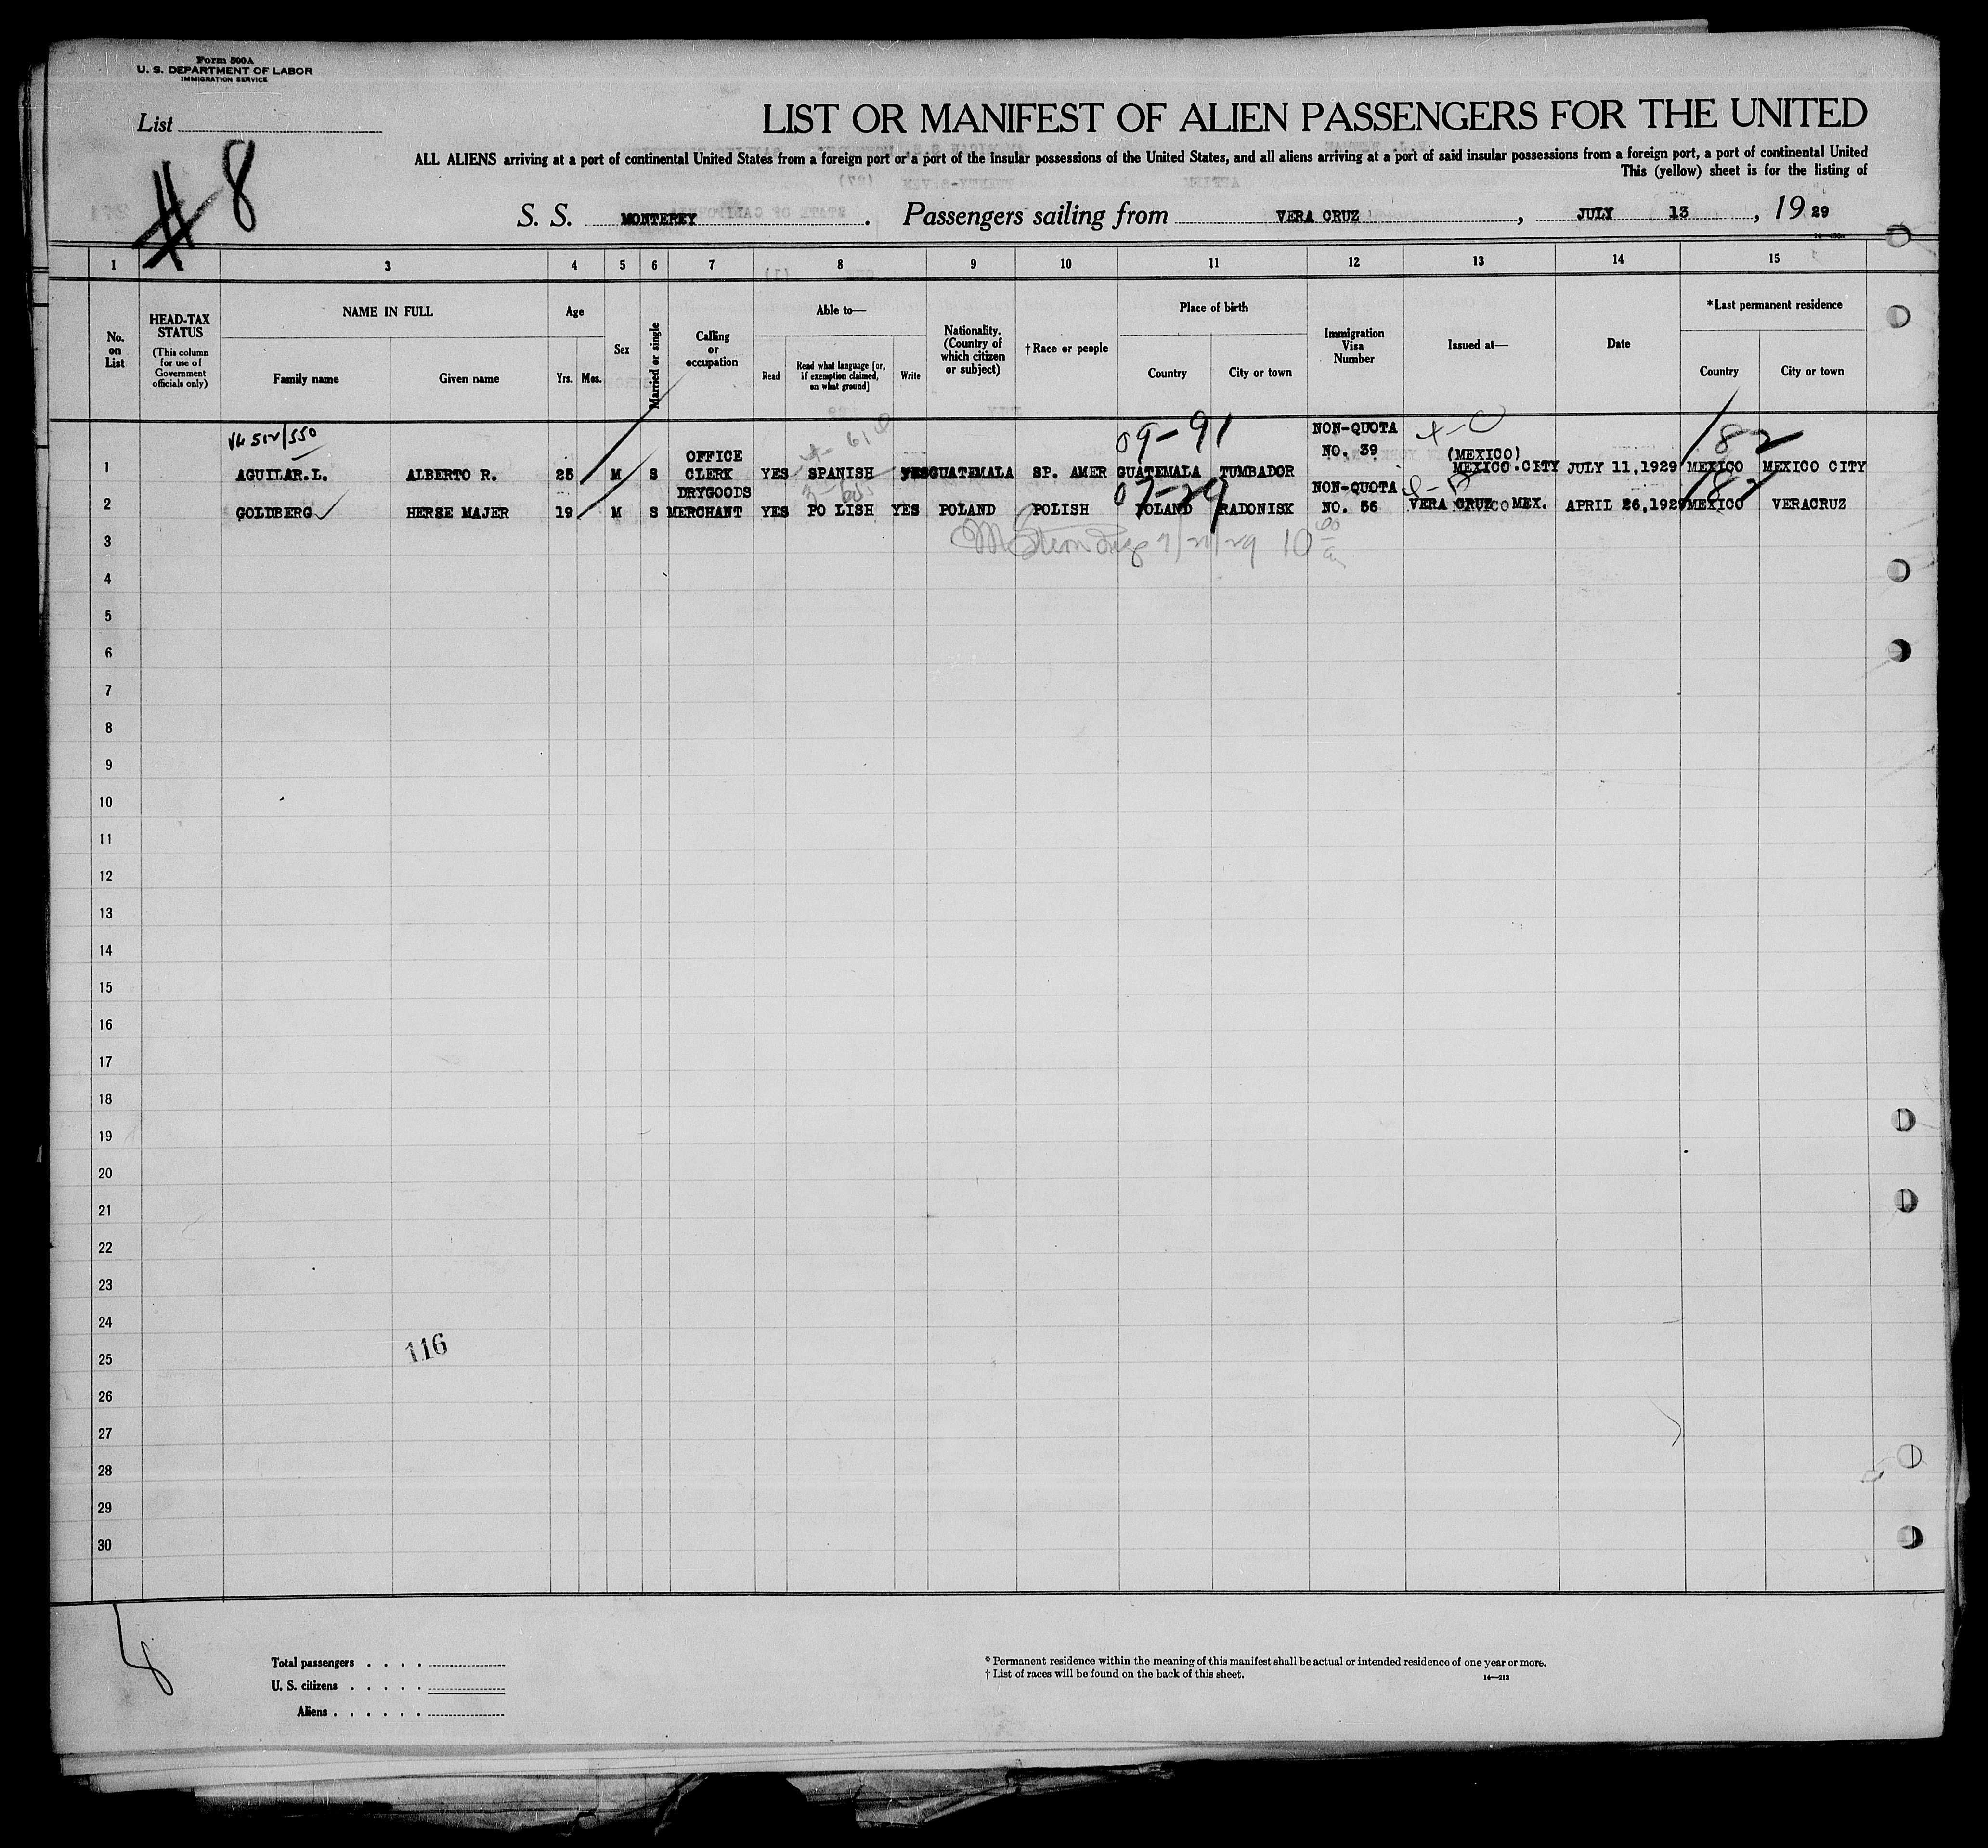 Form 500A
U. S. DEPARTMENT OF LABOR
IMMIGRATION SERVICE
List
# 8
LIST OR MANIFEST OF ALIEN PASSENGERS FOR THE UNITED
ALL ALIENS arriving at a port of continental United States from a foreign port or a port of the insular possessions of the United States, and all aliens arriving at a port of said insular possessions from a foreign port, a port of continental United
This (yellow) sheet is for the listing of
S. S. MONTEREY. Passengers sailing from VERA CRUZ, JULY 13, 19 29
1 3 4 5 6 7 8 9 10 11 12 13 14 15
No. on List
HEAD-TAX STATUS
(This column for use of Government officials only)
NAME IN FULL
Family name Given name
Age
Yrs. Mos.
Sex
Married or single
Calling or occupation
Able to—
Read
Read what language [or, if exemption claimed, on what ground]
Write
Nationality. (Country of which citizen or subject)
† Race or people
Place of birth
Country City or town
Immigration Visa Number
Issued at—
Date
*Last permanent residence
Country City or town
09-91
1 AGUILAR.L. ALBERTO R. 25 M S OFFICE CLERK YES SPANISH YES GUATEMALA SP. AMER GUATEMALA TUMBADOR NON-QUOTA NO. 39 (MEXICO) MEXICO.CITY JULY 11,1929 MEXICO MEXICO CITY
2 GOLDBERG HERSE MAJER 19 M S DRYGOODS MERCHANT YES PO LISH YES POLAND POLISH POLAND RADONISK NON-QUOTA NO. 56 VERA CRUZ MEX. APRIL 26,1929 MEXICO VERACRUZ
3
4
5
6
7
8
9
10
11
12
13
14
15
16
17
18
19
20
21
22
23
24
116
25
26
27
28
29
30
8
Total passengers . . . .
U. S. citizens . . . . .
Aliens . . . . . .
* Permanent residence within the meaning of this manifest shall be actual or intended residence of one year or more.
† List of races will be found on the back of this sheet.
14—213